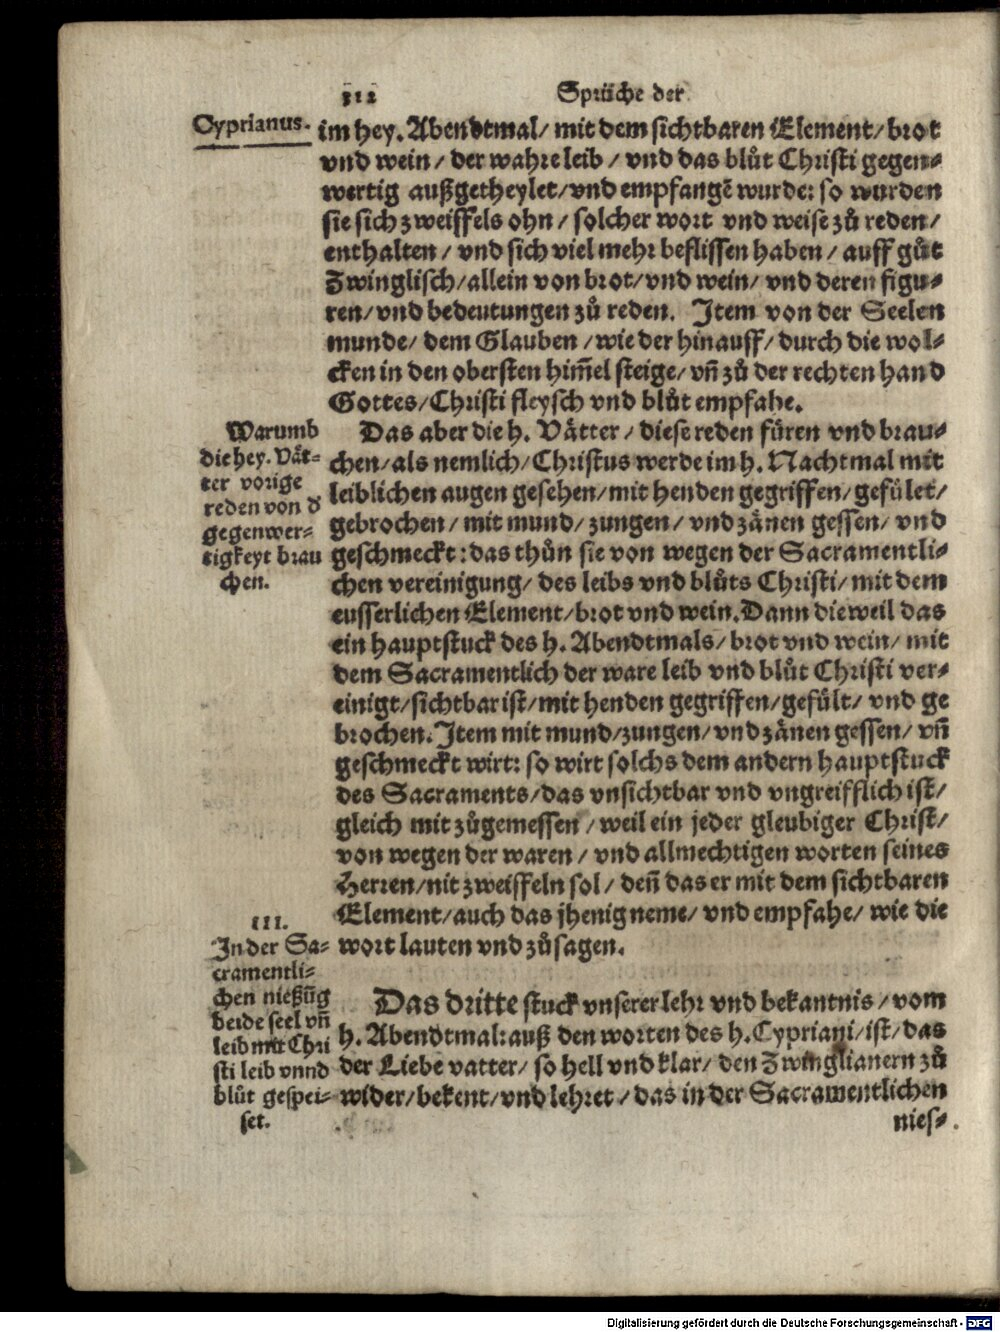 312
Sprüche der
Cyprianus.
im hey. Abendtmal/ mit dem sichtbaren Element/ brot
vnd wein/ der wahre leib/ vnd das blůt Christi gegen-
wertig außgetheylet/ vnd empfangē wurde: so wurden
sie sich zweiffels ohn/ solcher wort vnd weise zů reden/
enthalten/ vnd sich viel mehr beflissen haben/ auff gůt
Zwinglisch/ allein von brot/ vnd wein/ vnd deren figu-
ren/ vnd bedeutungen zů reden. Item von der Seelen
munde/ dem Glauben/ wie der hinauff/ durch die wol-
cken in den obersten him̄el steige/ vn̄ zů der rechten hand
Gottes/ Christi fleysch vnd blůt empfahe.
Warumb
die hey. Vät-
ter vorige
reden von d
gegenwer-
tigkeyt brau
chen.
Das aber die h. Vätter/ diese reden füren vnd brau-
chen/ als nemlich/ Christus werde im h. Nachtmal mit
leiblichen augen gesehen/ mit henden gegriffen/ gefület/
gebrochen/ mit mund/ zungen/ vnd zänen gessen/ vnd
geschmeckt: das thůn sie von wegen der Sacramentli-
chen vereinigung/ des leibs vnd blůts Christi/ mit dem
eusserlichen Element/ brot vnd wein. Dann dieweil das
ein hauptstuck des h. Abendtmals/ brot vnd wein/ mit
dem Sacramentlich der ware leib vnd blůt Christi ver-
einigt/ sichtbar ist/ mit henden gegriffen/ gefült/ vnd ge
brochen. Item mit mund/ zungen/ vnd zänen gessen/ vn̄
geschmeckt wirt: so wirt solchs dem andern hauptstuck
des Sacraments/ das vnsichtbar vnd vngreifflich ist/
gleich mit zůgemessen/ weil ein jeder gleubiger Christ/
von wegen der waren/ vnd allmechtigen worten seines
Herren/ nit zweiffeln sol/ den̄ das er mit dem sichtbaren
Element/ auch das jhenig neme/ vnd empfahe/ wie die
wort lauten vnd zůsagen.
III.
In der Sa-
cramentli-
chen nießūg
beide seel vn̄
leib mit Chri
sti leib vnnd
blůt gespei-
set.
Das dritte stuck vnserer lehr vnd bekantnis/ vom
h. Abendtmal: auß den worten des h. Cypriani/ ist/ das
der Liebe vatter/ so hell vnd klar/ den Zwinglianern zů
wider/ bekent/ vnd lehret/ das in der Sacramentlichen
nies-
Digitalisierung gefördert durch die Deutsche Forschungsgemeinschaft - DFG